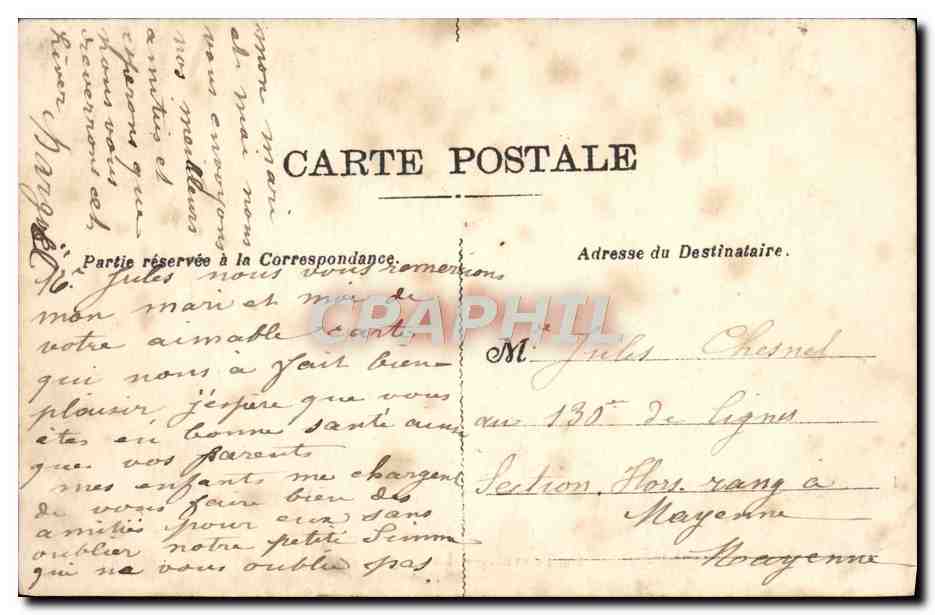 CARTE POSTALE
Partie réservée à la Correspondance.
Adresse du Destinataire.
Mr Jules nous vous remercions
mon mari et moi de
votre aimable carte
qui nous à fait bien
plaisir j'espère que vous
êtes en bonne santé ainsi
que vos parents
mes enfants me chargent
de vous faire bien des
amitiés pour eux sans
oublier notre petite Simone
qui ne vous oublie pas.
mon mari
et moi nous
vous envoyons
nos meilleurs
amitiés et
esperons que
nous vous
reverrons cet
hiver
M. Jules Chesnel
au 130e de ligne
Section Hors. rang a
Mayenne
Mayenne
CPAPHIL